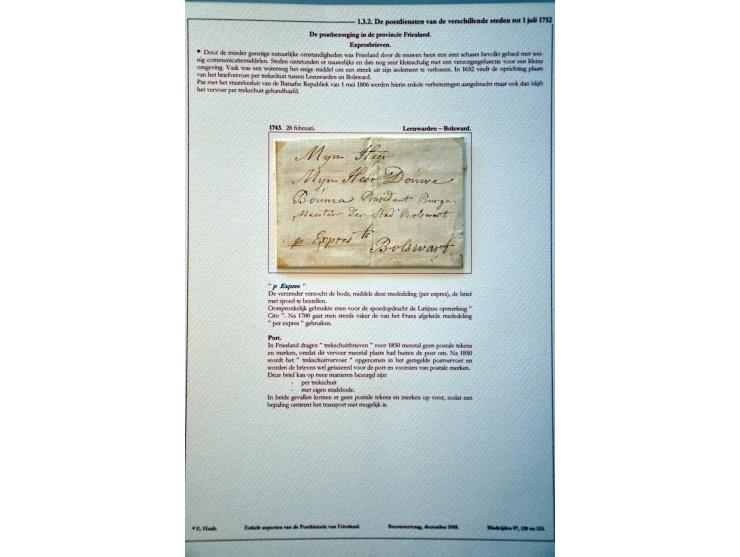 1.3.2. De postdiensten van de verschillende steden tot 1 juli 1752
De postbezorging in de provincie Friesland.
Expresbrieven.
* Door de minder gunstige natuurlijke omstandigheden was Friesland door de eeuwen heen een zeer schaars bevolkt gebied met wei-
nig communicatiemiddelen. Steden ontstonden er nauwelijks en dan nog zeer kleinschalig met een verzorgingsfunctie voor een kleine
omgeving. Vaak was een waterweg het enige middel om een streek uit zijn isolement te verlossen. In 1652 vindt de oprichting plaats
van het briefvervoer per trekschuit tussen Leeuwarden en Bolsward.
Pas met het staatsbesluit van de Bataafse Republiek van 1 mei 1806 werden hierin enkele verbeteringen aangebracht maar ook dan blijft
het vervoer per trekschuit gehandhaafd.
1743. 28 februari. Leeuwarden – Bolsward.
Myn Heer
Myn Heer Douwe
Bouma President Burge
Meester der Stad Bolswart
p Expres te Bolswart
" p Expres "
De verzender verzocht de bode, middels deze mededeling (per expres), de brief
met spoed te bestellen.
Oorspronkelijk gebruikte men voor de spoedopdracht de Latijnse opmerking "
Cito ". Na 1700 gaat men steeds vaker de van het Frans afgeleide mededeling
" per expres " gebruiken.
Port.
In Friesland dragen " trekschuitbrieven " voor 1850 meestal geen postale tekens
en merken, omdat dit vervoer meestal plaats had buiten de post om. Na 1850
wordt het " trekschuitvervoer " opgenomen in het geregelde postvervoer en
worden de brieven wel getaxeerd voor de port en voorzien van postale merken.
Deze brief kan op twee manieren bezorgd zijn:
- per trekschuit
- met eigen stadsbode.
In beide gevallen komen er geen postale tekens en merken op voor, zodat een
bepaling omtrent het transport niet mogelijk is.
Enkele aspecten van de Posthistorie van Friesland. december 1988.